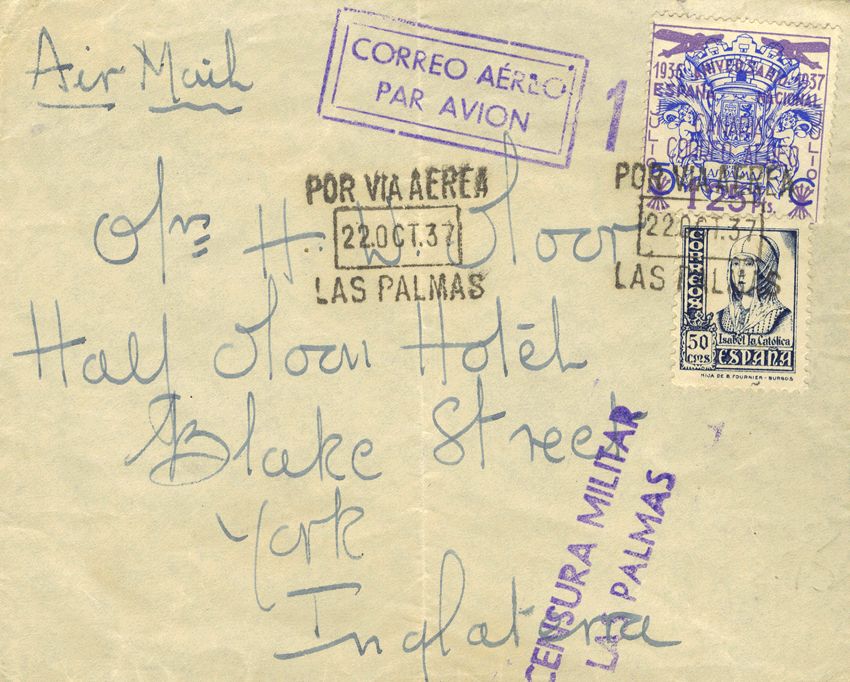 Air Mail
CORREO AÉREO
PAR AVION
1
1936 ANIVERSARIO 1937
ESPAÑA NACIONAL
JULIO JULIO
CANARIAS
CORREO AEREO
POR VIA AEREA
22.OCT.37
LAS PALMAS
POR VIA AEREA
22.OCT.37
LAS PALMAS
CORREOS
50 CTMS
Isabel la Católica
ESPAÑA
HIJA DE B. FOURNIER - BURGOS
H. W. Moor
Half Moon Hotel
Blake Street
York
Inglaterra
CENSURA MILITAR
LAS PALMAS